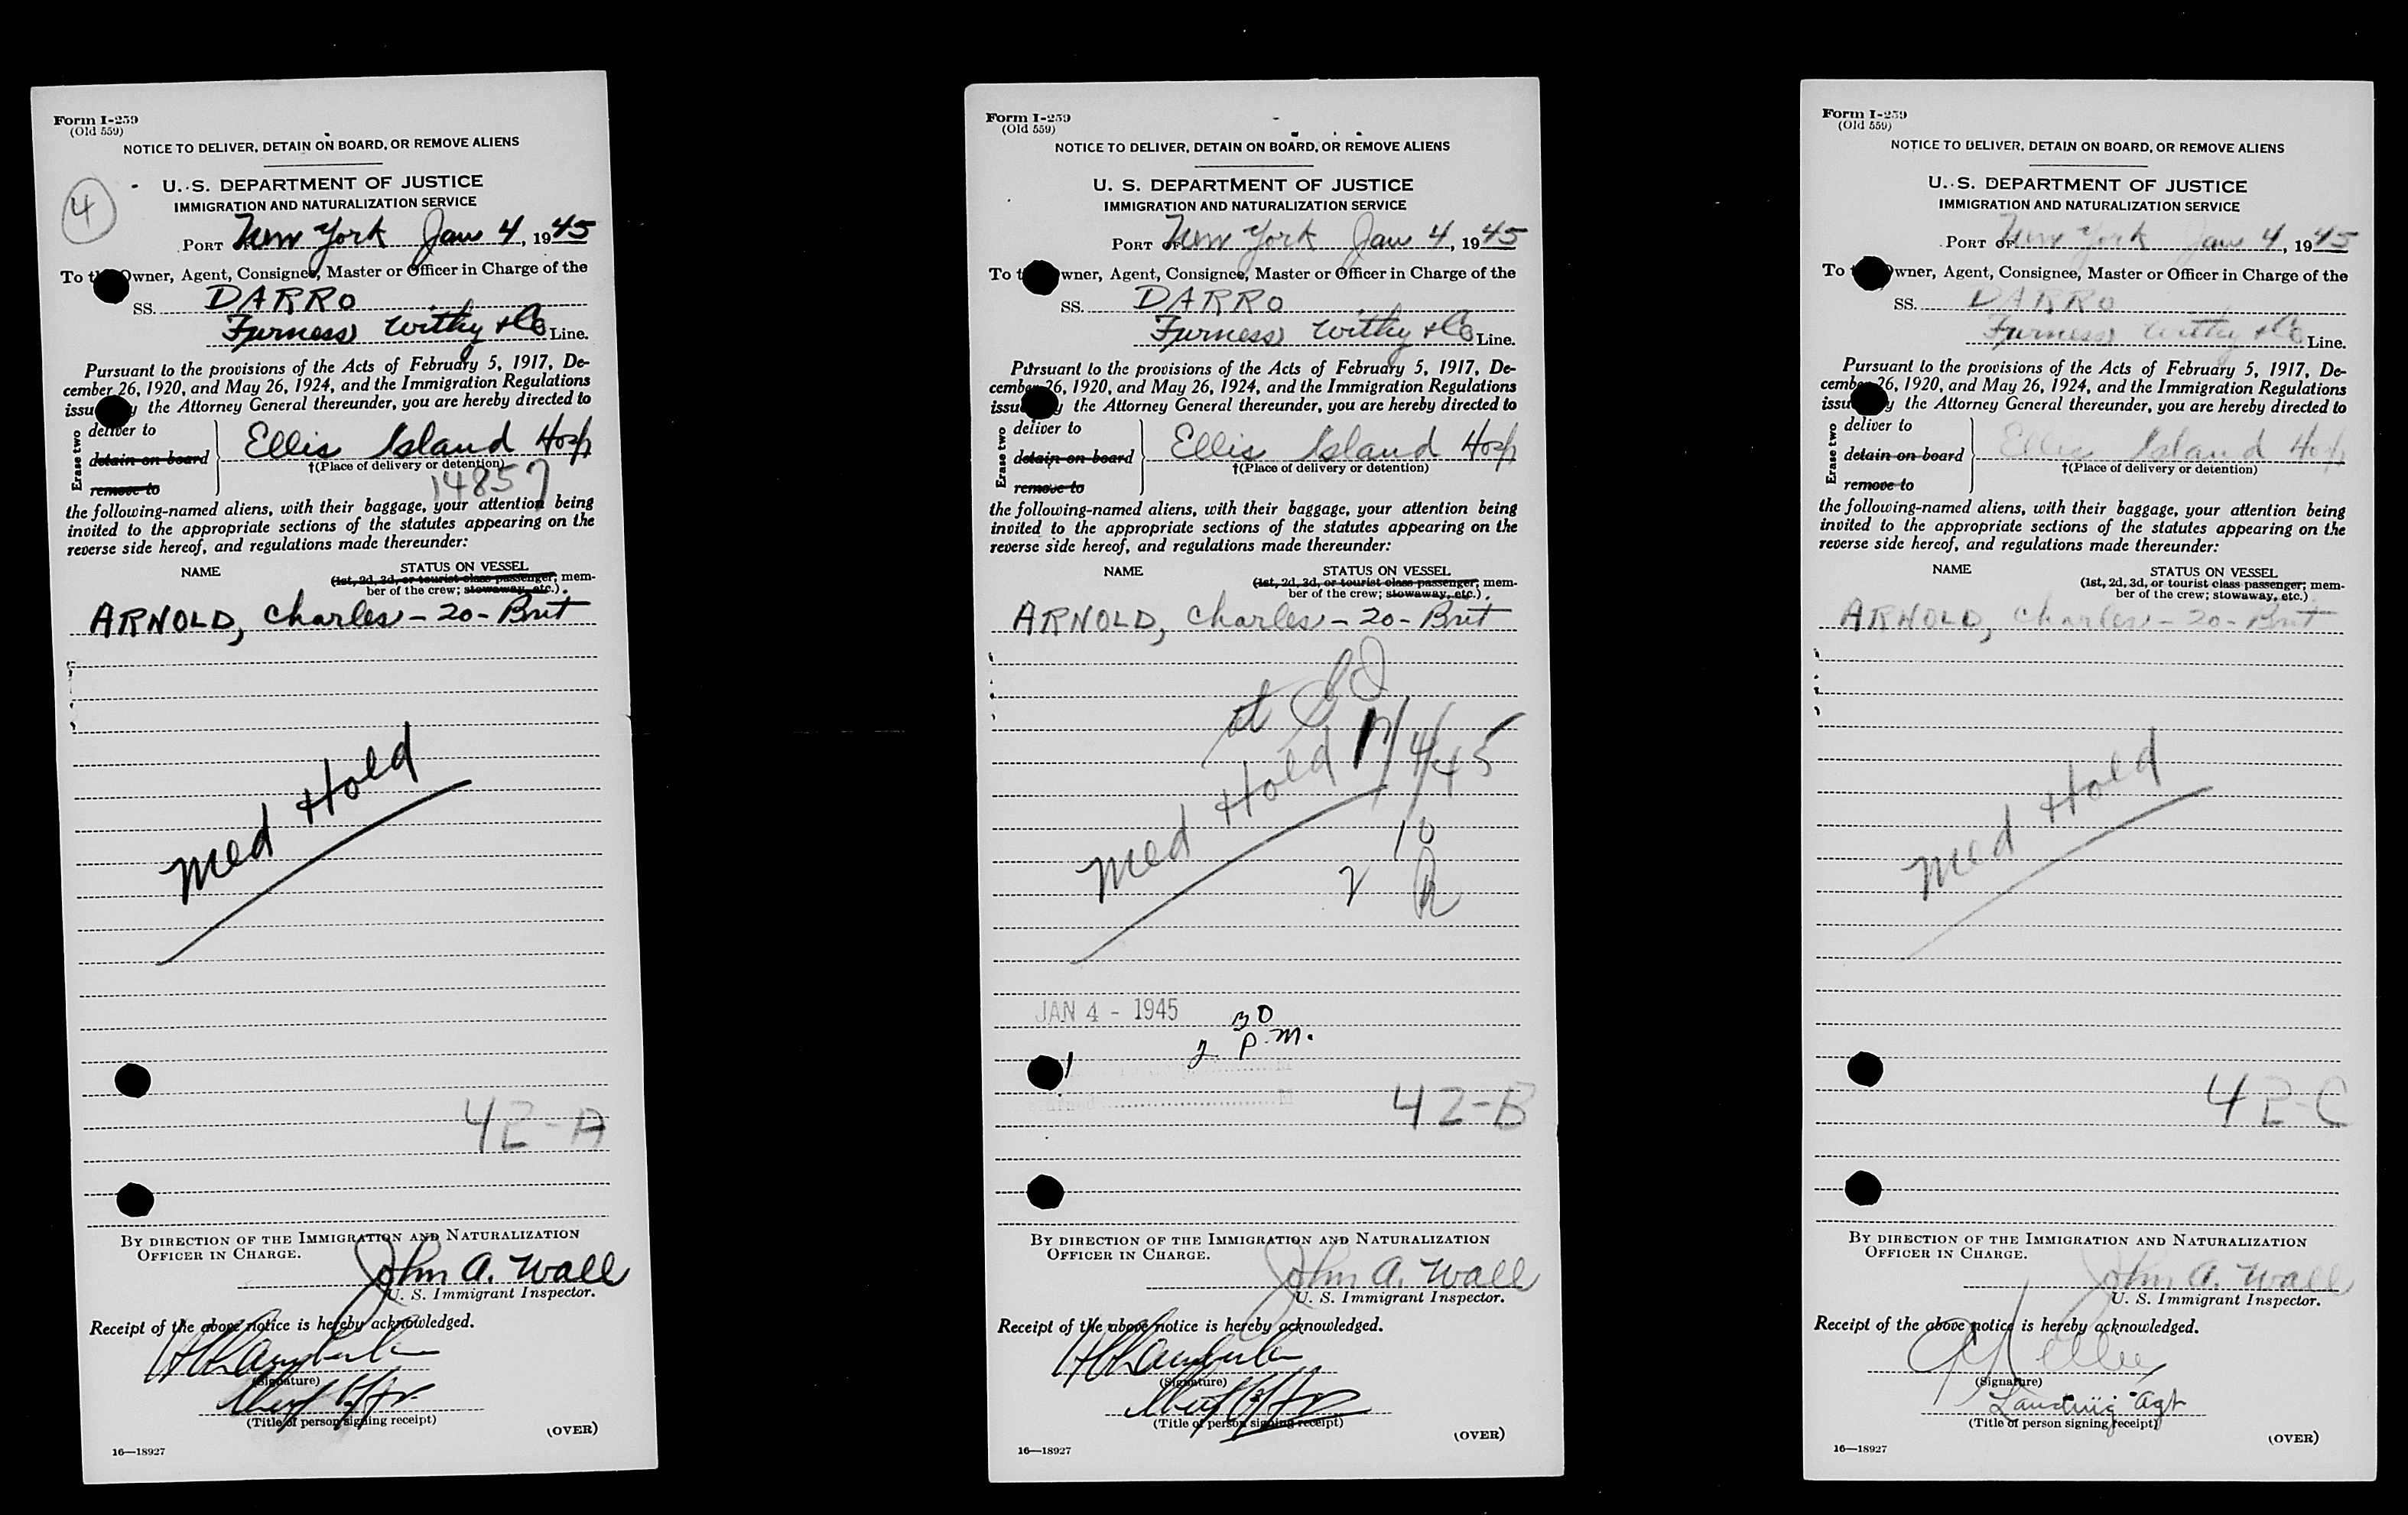 Form I-259
(Old 559)
NOTICE TO DELIVER, DETAIN ON BOARD, OR REMOVE ALIENS
4
U. S. DEPARTMENT OF JUSTICE
IMMIGRATION AND NATURALIZATION SERVICE
PORT New York Jan 4, 1945
To Owner, Agent, Consignee, Master or Officer in Charge of the
SS. DARRO
Furness Withy & Co Line.
Pursuant to the provisions of the Acts of February 5, 1917, De-
cember 26, 1920, and May 26, 1924, and the Immigration Regulations
issu y the Attorney General thereunder, you are hereby directed to
Erase two
deliver to
detain on board
remove to
Ellis Island Hosp
†(Place of delivery or detention)
14857
the following-named aliens, with their baggage, your attention being
invited to the appropriate sections of the statutes appearing on the
reverse side hereof, and regulations made thereunder:
NAME STATUS ON VESSEL
(1st, 2d, 3d, or tourist class passenger; mem-
ber of the crew; stowaway, etc.)
ARNOLD, Charles - 20 - Brit
Med Hold
42-A
BY DIRECTION OF THE IMMIGRATION AND NATURALIZATION
OFFICER IN CHARGE.
John A. Wall
U. S. Immigrant Inspector.
Receipt of the above notice is hereby acknowledged.
(Signature)
(Title of person signing receipt)
(OVER)
16—18927
Form I-259
(Old 559)
NOTICE TO DELIVER, DETAIN ON BOARD, OR REMOVE ALIENS
U. S. DEPARTMENT OF JUSTICE
IMMIGRATION AND NATURALIZATION SERVICE
PORT OF New York Jan 4, 1945
To t wner, Agent, Consignee, Master or Officer in Charge of the
SS. DARRO
Furness Withy & Co Line.
Pursuant to the provisions of the Acts of February 5, 1917, De-
cember 26, 1920, and May 26, 1924, and the Immigration Regulations
issu y the Attorney General thereunder, you are hereby directed to
Erase two
deliver to
detain on board
remove to
Ellis Island Hosp
†(Place of delivery or detention)
the following-named aliens, with their baggage, your attention being
invited to the appropriate sections of the statutes appearing on the
reverse side hereof, and regulations made thereunder:
NAME STATUS ON VESSEL
(1st, 2d, 3d, or tourist class passenger; mem-
ber of the crew; stowaway, etc.)
ARNOLD, Charles - 20 - Brit
Med Hold
1/4/45
JAN 4 - 1945
2 30 P.M.
42-B
BY DIRECTION OF THE IMMIGRATION AND NATURALIZATION
OFFICER IN CHARGE.
John A. Wall
U. S. Immigrant Inspector.
Receipt of the above notice is hereby acknowledged.
(Signature)
(Title of person signing receipt)
(OVER)
16—18927
Form I-259
(Old 559)
NOTICE TO DELIVER, DETAIN ON BOARD, OR REMOVE ALIENS
U. S. DEPARTMENT OF JUSTICE
IMMIGRATION AND NATURALIZATION SERVICE
PORT OF New York Jan 4, 1945
To Owner, Agent, Consignee, Master or Officer in Charge of the
SS. DARRO
Furness Withy & Co Line.
Pursuant to the provisions of the Acts of February 5, 1917, De-
cember 26, 1920, and May 26, 1924, and the Immigration Regulations
issu y the Attorney General thereunder, you are hereby directed to
Erase two
deliver to
detain on board
remove to
Ellis Island Hosp
†(Place of delivery or detention)
the following-named aliens, with their baggage, your attention being
invited to the appropriate sections of the statutes appearing on the
reverse side hereof, and regulations made thereunder:
NAME STATUS ON VESSEL
(1st, 2d, 3d, or tourist class passenger; mem-
ber of the crew; stowaway, etc.)
ARNOLD, Charles - 20 - Brit
Med Hold
42-C
BY DIRECTION OF THE IMMIGRATION AND NATURALIZATION
OFFICER IN CHARGE.
John A. Wall
U. S. Immigrant Inspector.
Receipt of the above notice is hereby acknowledged.
(Signature)
Landing Agt
(Title of person signing receipt)
(OVER)
16—18927